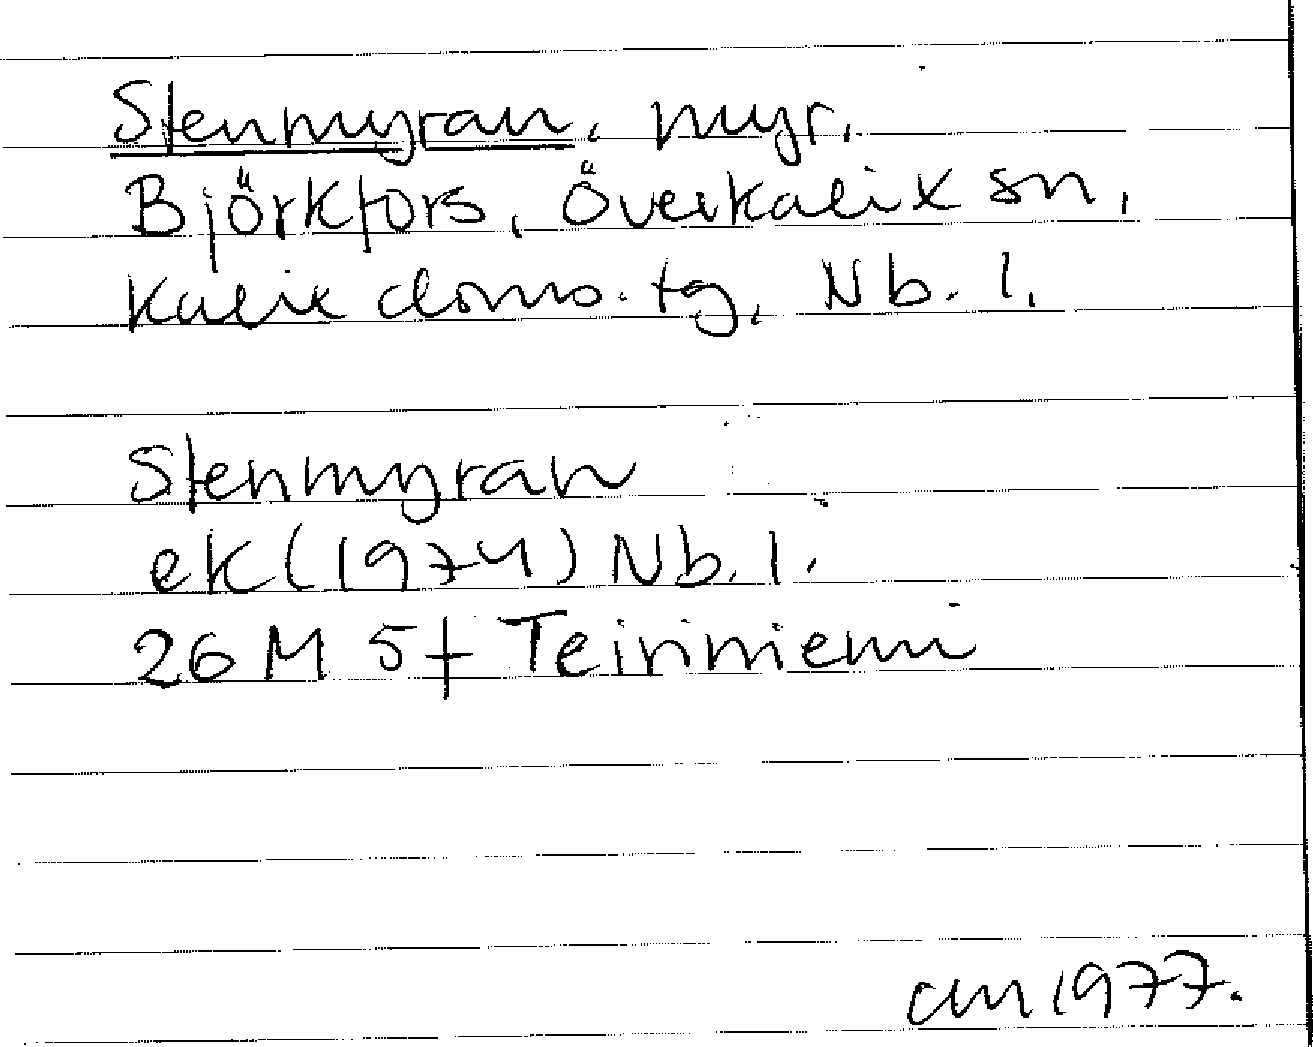 Stenmyran, myr,
Björkfors, Överkalix sn,
Kalix doms. tg, Nb. l.
Stenmyran
ek (1974) Nb. l.
26 M 5f Teiriniemi
cm 1977.